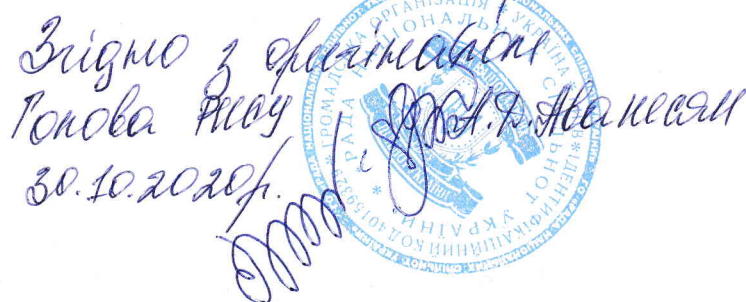 Згідно з оригіналом
Голова РНСУ А.Д. Аванесян
30.10.2020р.
ГРОМАДСЬКА ОРГАНІЗАЦІЯ * УКРАЇНА
РАДА НАЦІОНАЛЬНИХ СПІЛЬНОТ УКРАЇНИ
ІДЕНТИФІКАЦІЙНИЙ КОД